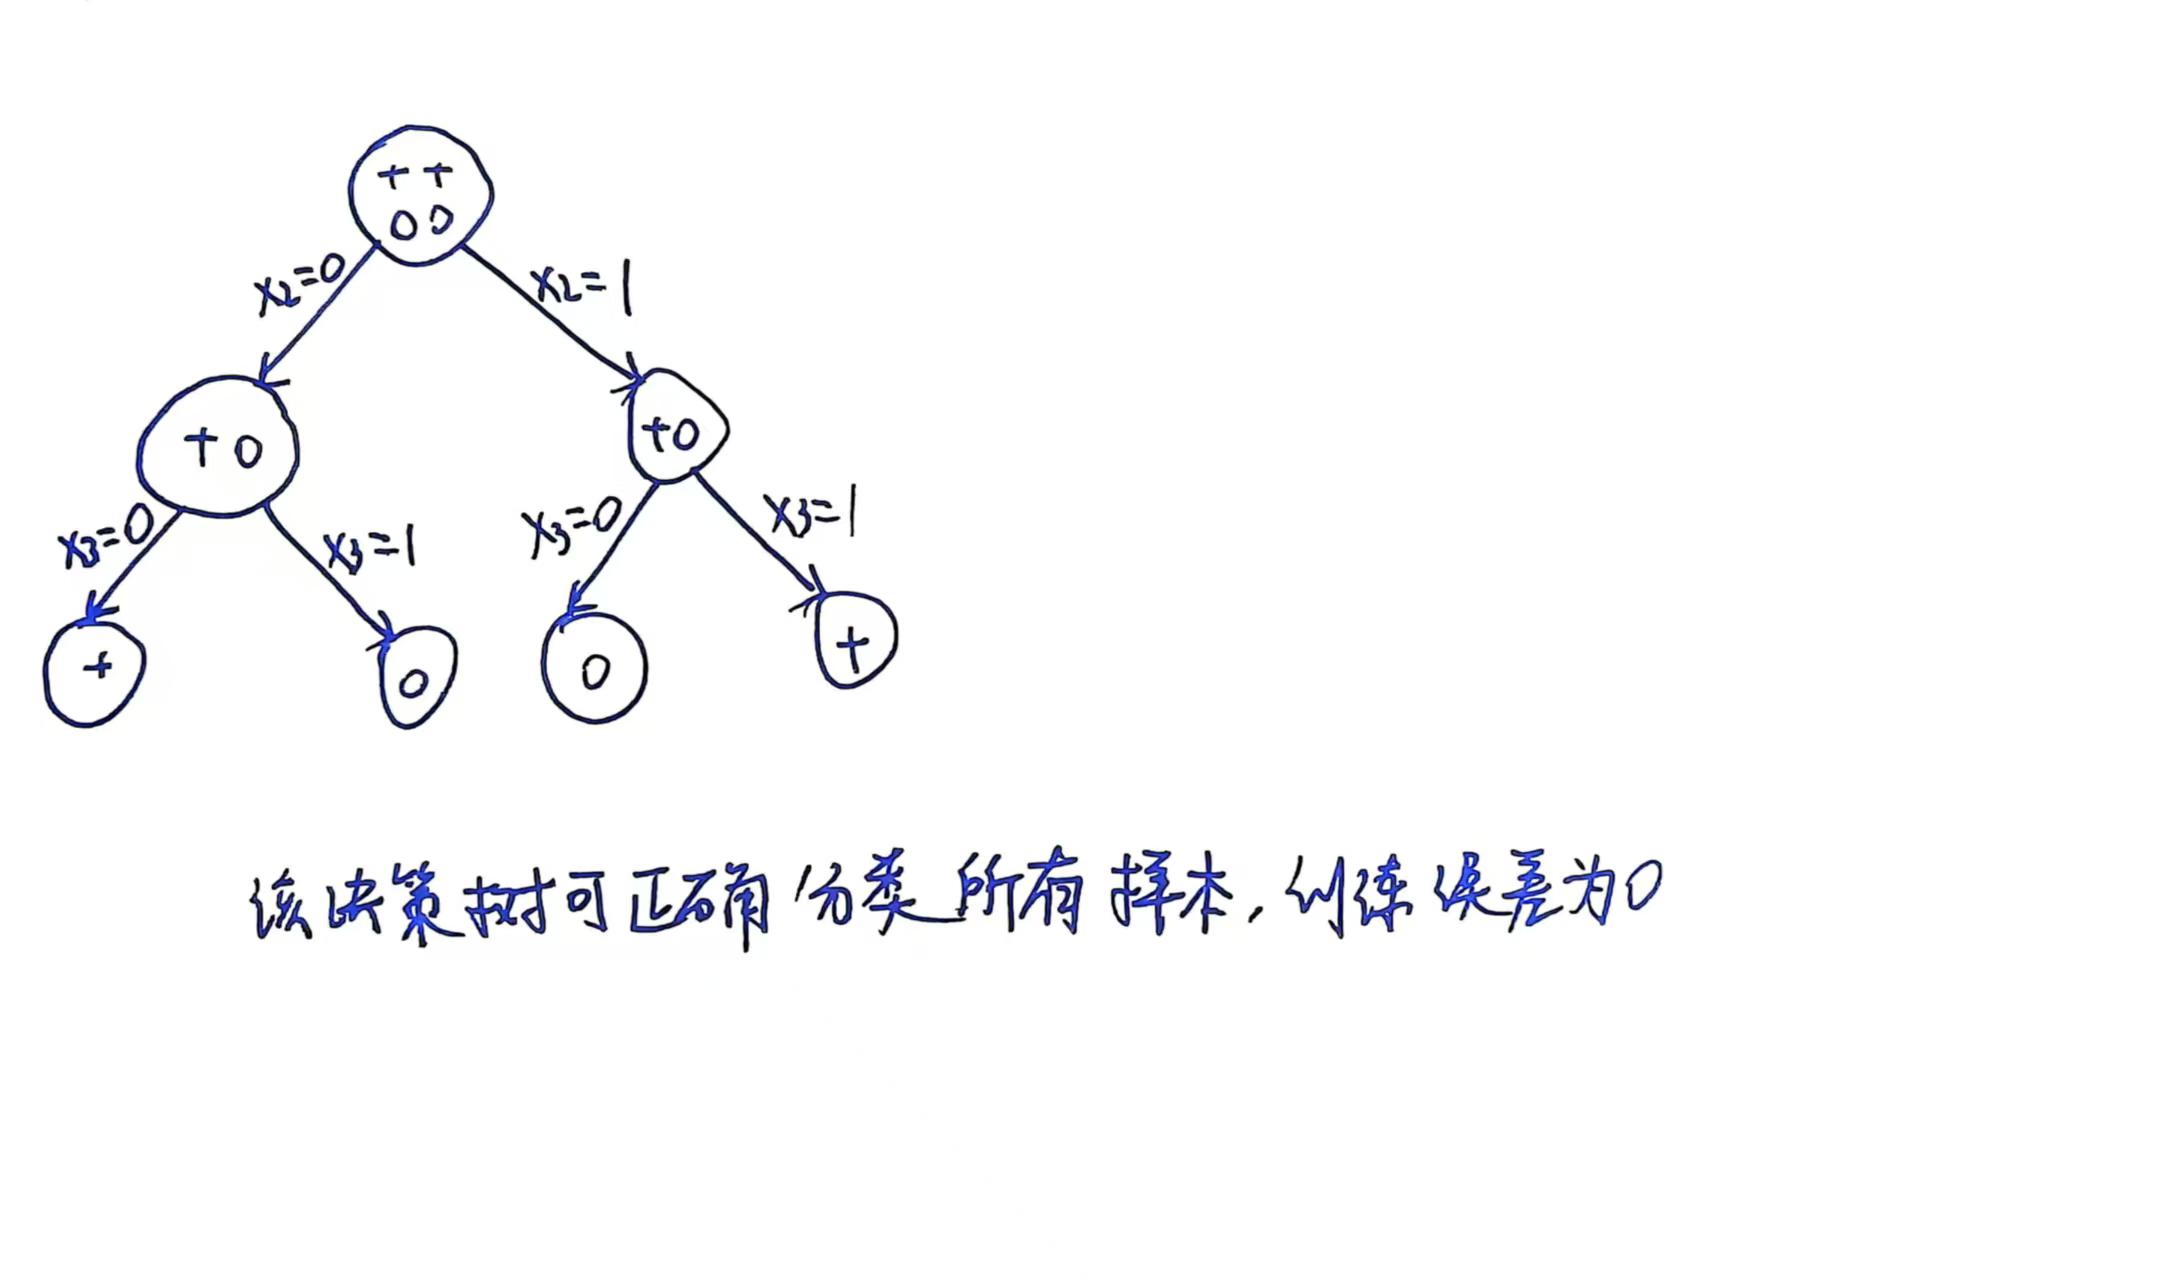 ++
00
x2=0
x2=1
+0
+0
x3=0
x3=1
x3=0
x3=1
+
0
0
+
该决策树可正确分类所有样本,训练误差为0